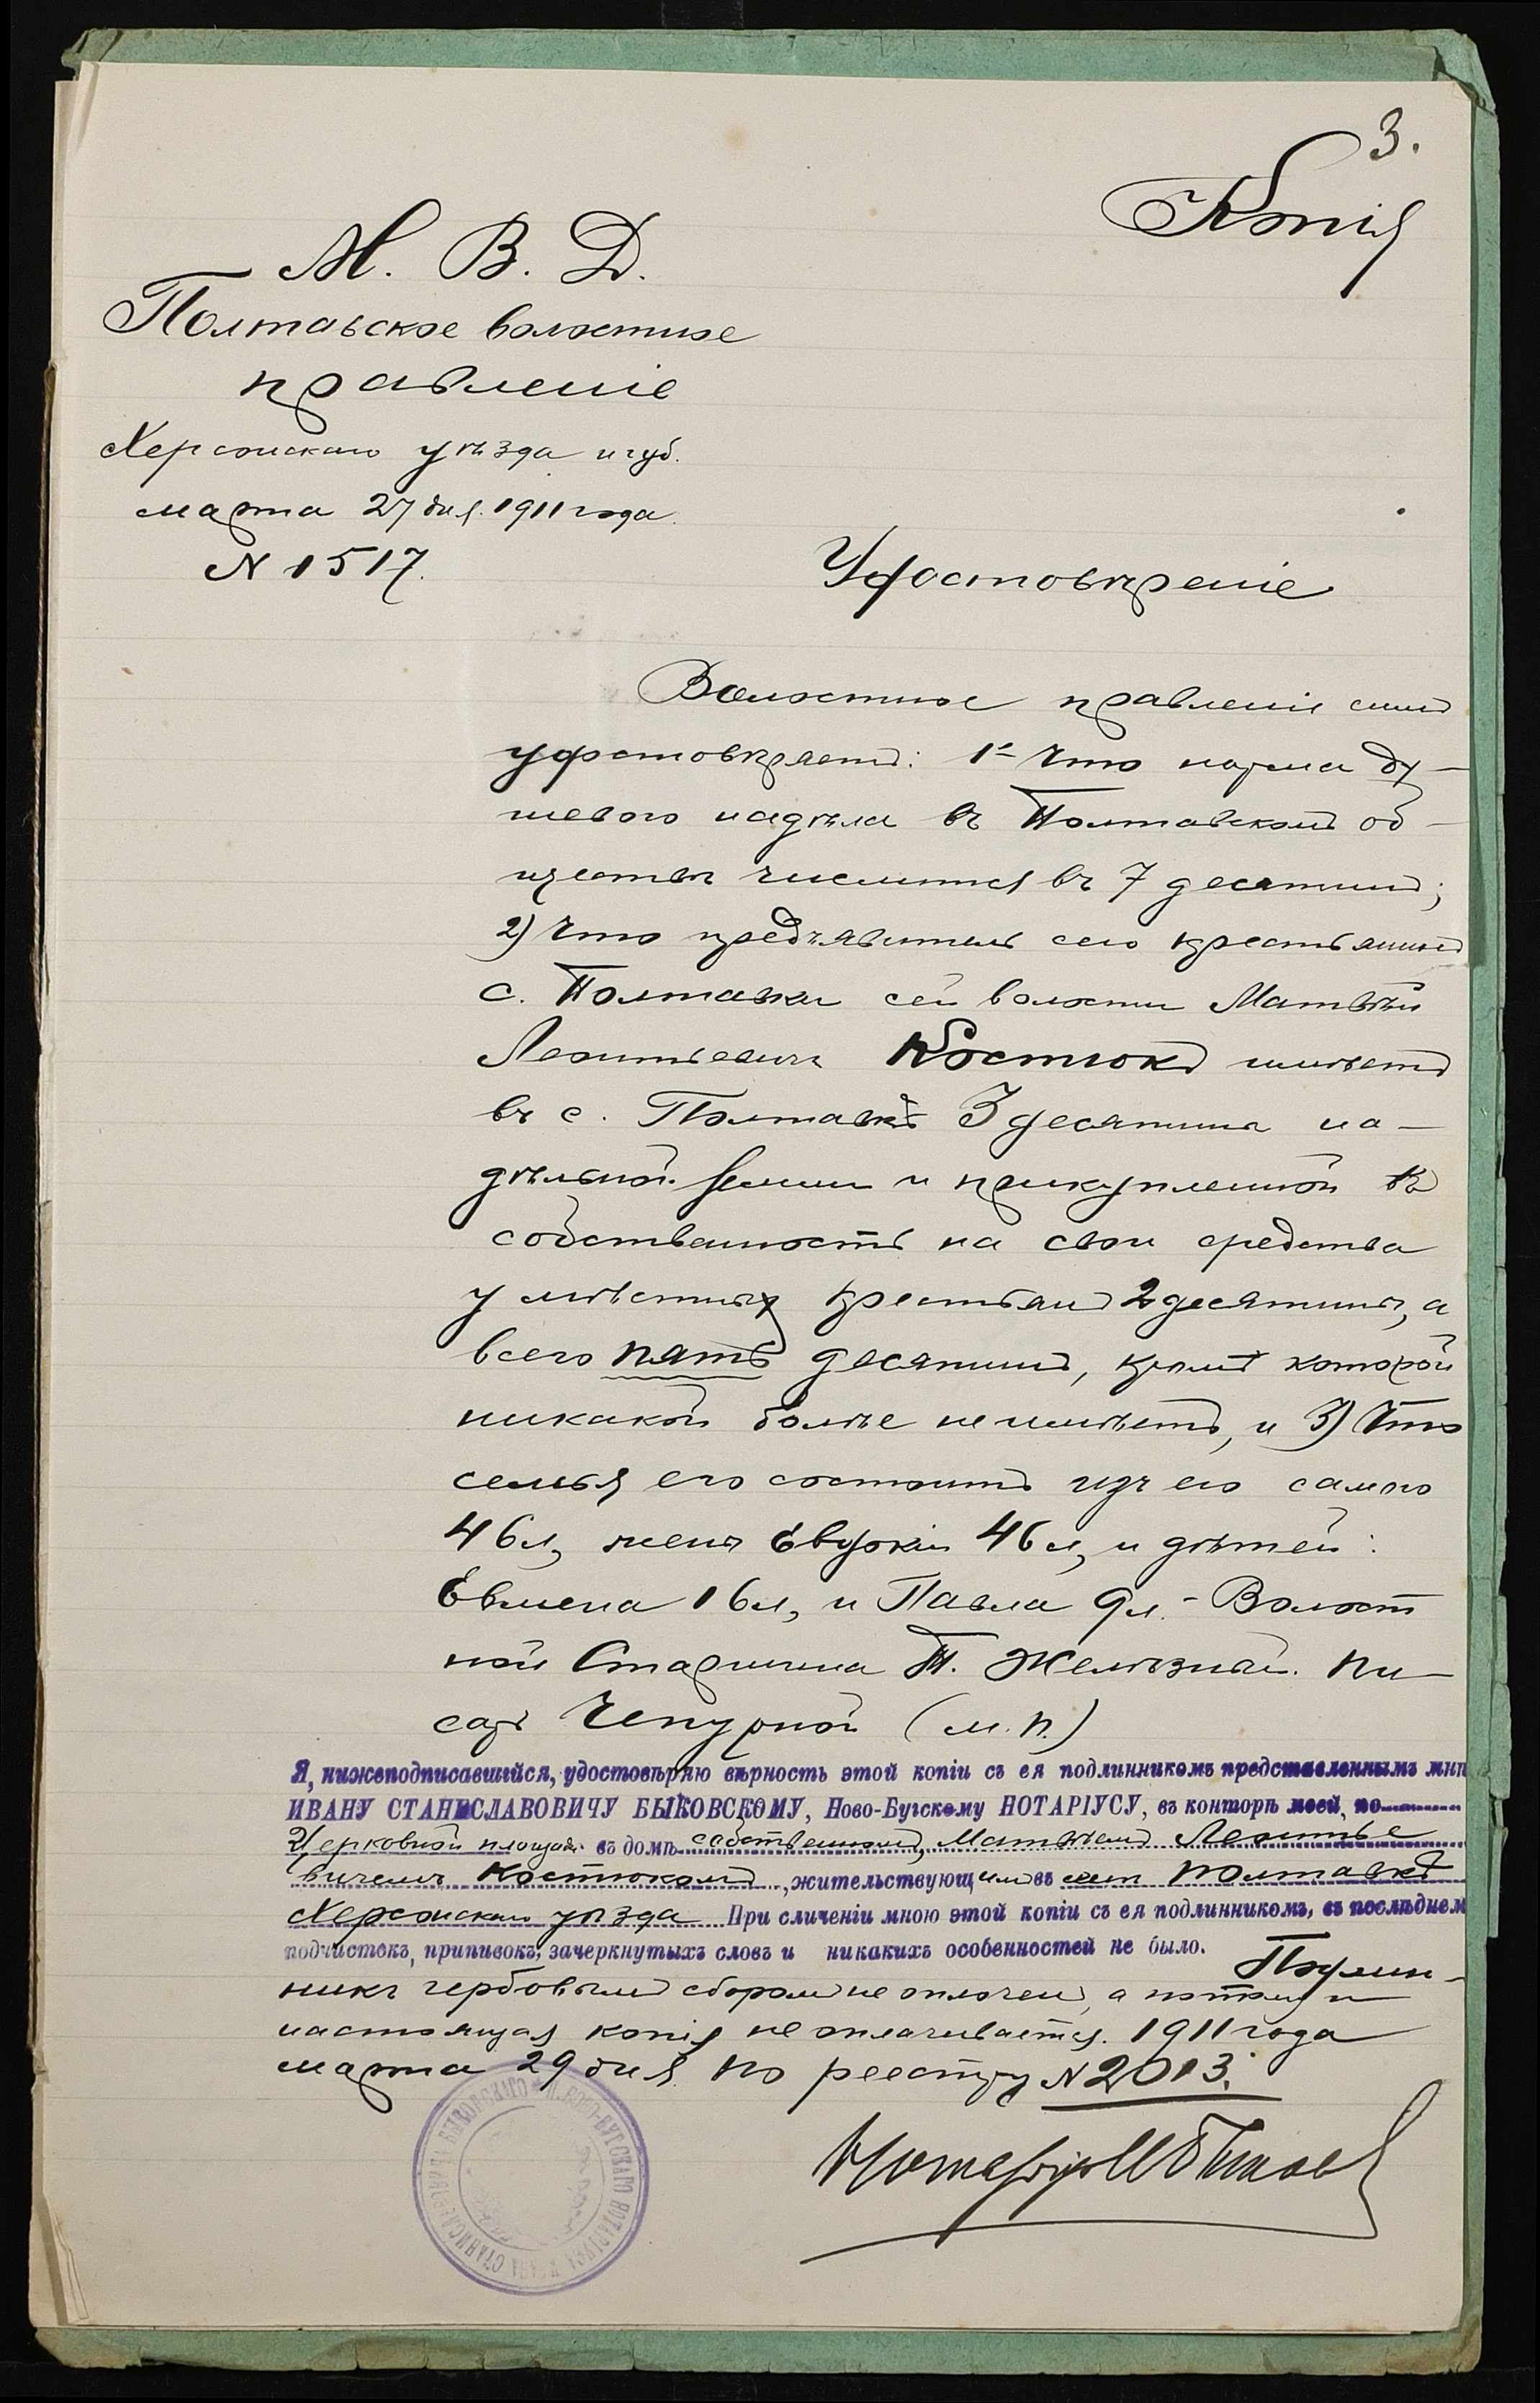 3.
Копія
М. В. Д.
Полтавское волостное
правленіе
Херсонскаго уѣзда и губ.
марта 27 дня 1911 года.
N 1517.
Удостовѣреніе
Волостное правленіе симъ
удостовѣряетъ: 1е Что норма ду-
шевого надѣла въ Полтавскомъ об-
ществѣ числится въ 7 десятинъ;
2) Что предъявитель сего крестьянинъ
с. Полтавки сей волости Матвѣй
Леонтьевичъ Костюкъ имѣетъ
въ с. Полтавкѣ 3 десятины на-
дѣльной земли и прикупленной въ
собственность на свои средства
у мѣстныхъ крестьянъ 2 десятины, а
всего пять десятинъ, кромѣ которой
никакой болѣе не имѣетъ, и 3) Что
семья его состоитъ изъ его самого
46 л, жены Евдокіи 46 л, и дѣтей:
Евмена 16 л, и Павла 9 л. - Волост
ной Старшина П. Желѣзный. Пи-
сарь Чепурной (м. п.)
Я, нижеподписавшійся, удостовѣряю вѣрность этой копіи съ ея подлинникомъ представленнымъ мнѣ
ИВАНУ СТАНИСЛАВОВИЧУ БЫКОВСКОМУ, Ново-Бугскому НОТАРІУСУ, въ конторѣ моей, по
Церковной площади въ домѣ собственномъ, Матвѣемъ Леонтье
вичемъ Костюкомъ, жительствующимъ въ селѣ Полтавкѣ
Херсонскаго уѣзда При сличеніи мною этой копіи съ ея подлинникомъ, въ послѣднем
подчистокъ, приписокъ, зачеркнутыхъ словъ и никакихъ особенностей не было. Подлин-
никъ гербовымъ сборомъ не оплоченъ, а потому и
настоящая копія не оплачивается. 1911 года
марта 29 дня. По реестру N 2013.
Нотаріусъ И Быков